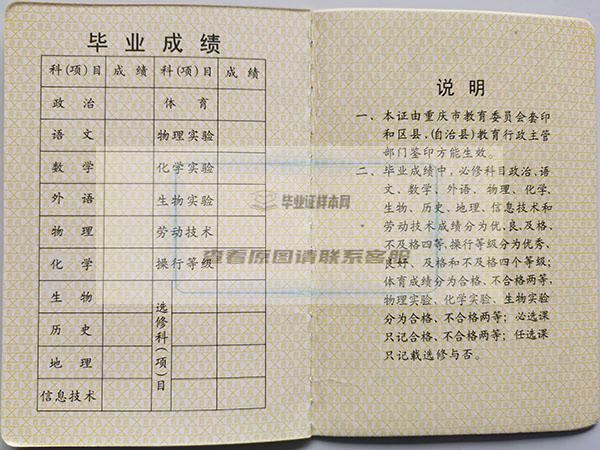 毕业成绩
科(项)目 成绩 科(项)目 成绩
政治 体育
语文 物理实验
数学 化学实验
外语 生物实验
物理 劳动技术
化学 操行等级
生物 选修科(项)目
历史
地理
信息技术
说明
一、本证由重庆市教育委员会套印
和区县、(自治县)教育行政主管
部门签印方能生效。
二、毕业成绩中,必修科目政治、语
文、数学、外语、物理、化学、
生物、历史、地理、信息技术和
劳动技术成绩分为优、良、及格、
不及格四等,操行等级分为优秀、
良好、及格和不及格四个等级;
体育成绩分为合格、不合格两等,
物理实验、化学实验、生物实验
分为合格、不合格两等;必选课
只记合格、不合格两等;任选课
只记载选修与否。
毕业证样本网
查看原图请联系客服